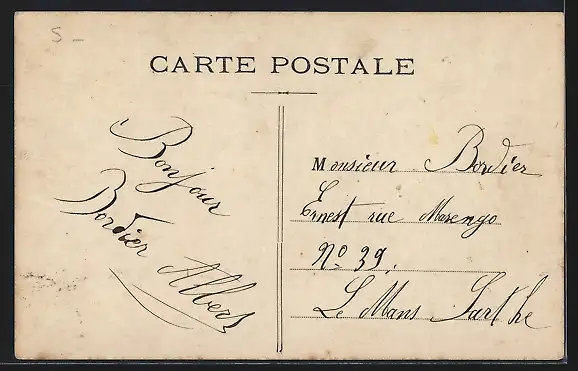 5 -
CARTE POSTALE
Bonjour
Bordier Albert
Monsieur Bordier
Ernest rue Marengo
No 39,
Le Mans Sarthe